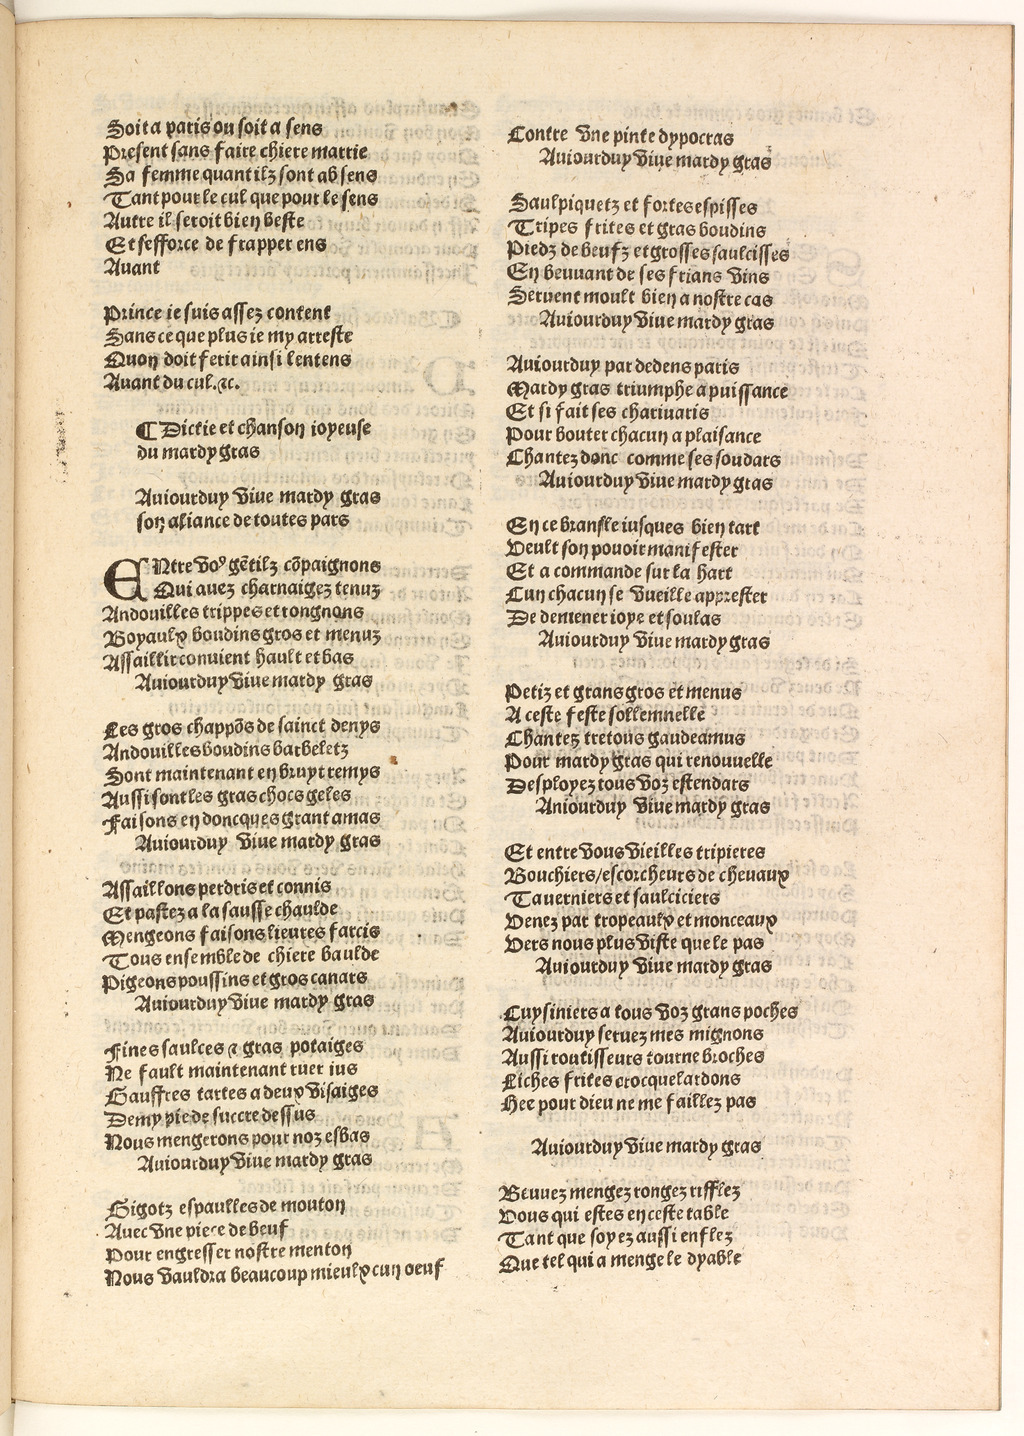 Soit a paris ou soit a sens
Present sans faire chiere marrie
Sa femme quant ilz sont ab sens
Tant pour le cul que pour le sens
Autre il seroit bien beste
Et sefforce de frapper ens
Auant
Prince ie suis assez content
Sans ce que plus ie my arreste
Quon doit ferir ainsi lentens
Auant du cul.⁊c.
¶ Dictie et chanson ioyeuse
du mardy gras
Auiourduy viue mardy gras
son aliance de toutes pars
ENtre voꝰ gētilz cōpaignons
Qui auez charnaigez tenuz
Andouilles trippes et rongnons
Boyaulx boudins gros et menuz
Assaillir conuient hault et bas
Auiourduy viue mardy gras
Les gros chappōs de sainct denys
Andouilles boudins barbeletz
Sont maintenant en bruyt remys
Aussi sont les gras chocs geles
Faisons en doncques grant amas
Auiourduy viue mardy gras
Assaillons perdris et connis
Et pastez a la sausse chaulde
Mengeons faisons lieures farcis
Tous ensemble de chiere baulde
Pigeons poussins et gros canars
Auiourduy viue mardy gras
Fines saulces ⁊ gras potaiges
Ne fault maintenant ruer ius
Gauffres tartes a deux visaiges
Demy pie de succre dessus
Nous mengerons pour noz esbas
Auiourduy viue mardy gras
Gigotz espaulles de mouton
Auec vne piece de beuf
Pour engresser nostre menton
Nous vauldra beaucoup mieulx cun oeuf
Contre vne pinte dypocras
Auiourduy viue mardy gras
Saulpiquetz et fortes espisses
Tripes frites et gras boudins
Piedz de beufz et grosses saulcisses
En beuuant de ses frians vins
Seruent moult bien a nostre cas
Auiourduy viue mardy gras
Auiourduy par dedens paris
Mardy gras triumphe a puissance
Et si fait ses chariuaris
Pour bouter chacun a plaisance
Chantez donc comme ses soudars
Auiourduy viue mardy gras
En ce bransle iusques bien tart
Veult son pouoir manifester
Et a commande sur la hart
Cun chacun se vueille apprester
De demener ioye et soulas
Auiourduy viue mardy gras
Petiz et grans gros et menus
A ceste feste sollemnelle
Chantez tretous gaudeamus
Pour mardy gras qui renouuelle
Desployez tous voz estendars
Aniourduy viue mardy gras
Et entre vous vieilles tripieres
Bouchiers/escorcheurs de cheuaux
Tauerniers et saulciciers
Venez par tropeaulx et monceaux
Vers nous plus viste que le pas
Auiourduy viue mardy gras
Cuysiniers a tous voz grans poches
Auiourduy seruez mes mignons
Aussi routisseurs tourne broches
Liches frites crocquelardons
Hee pour dieu ne me faillez pas
Auiourduy viue mardy gras
Beuuez mengez rongez rifflez
Vous qui estes en ceste table
Tant que soyez aussi enflez
Que tel qui a menge le dyable